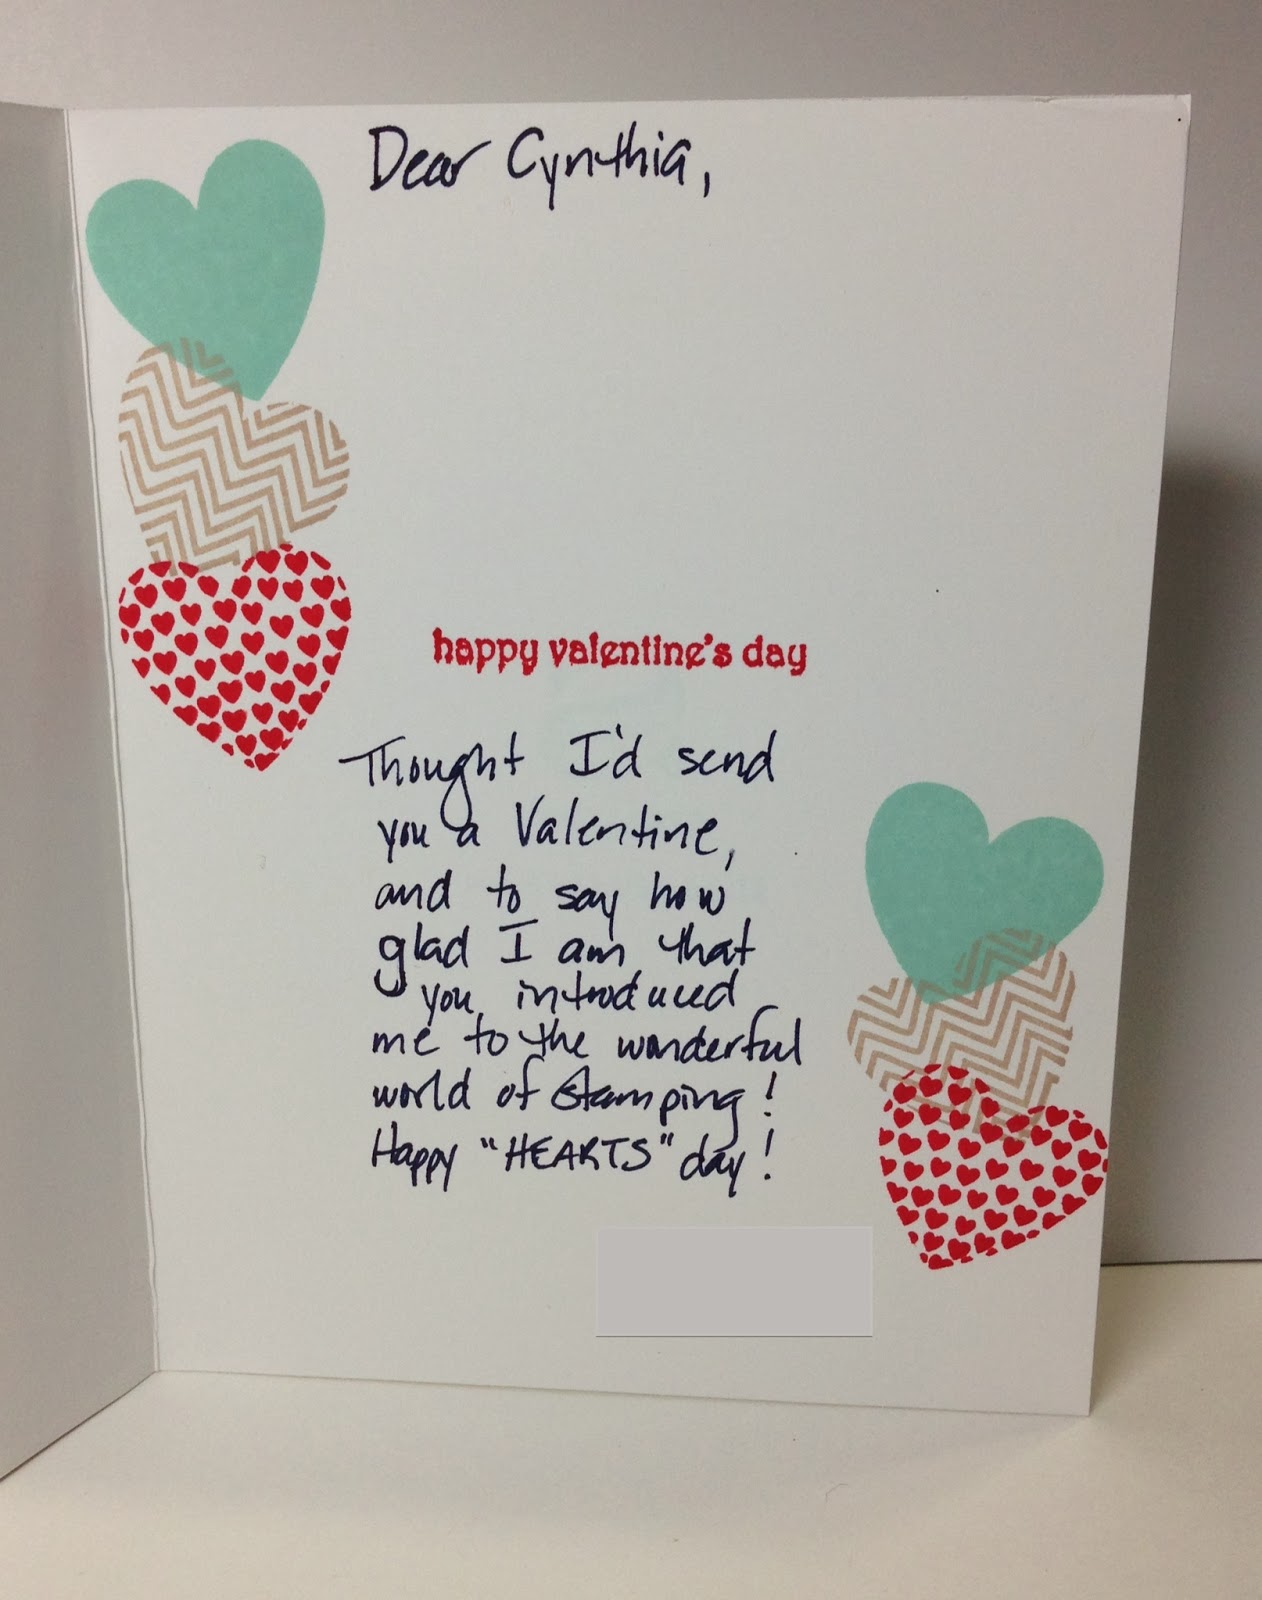 Dear Cynthia,
happy valentine's day
Thought I'd send
you a Valentine,
and to say how
glad I am that
you introduced
me to the wonderful
world of stamping!
Happy "HEARTS" day!